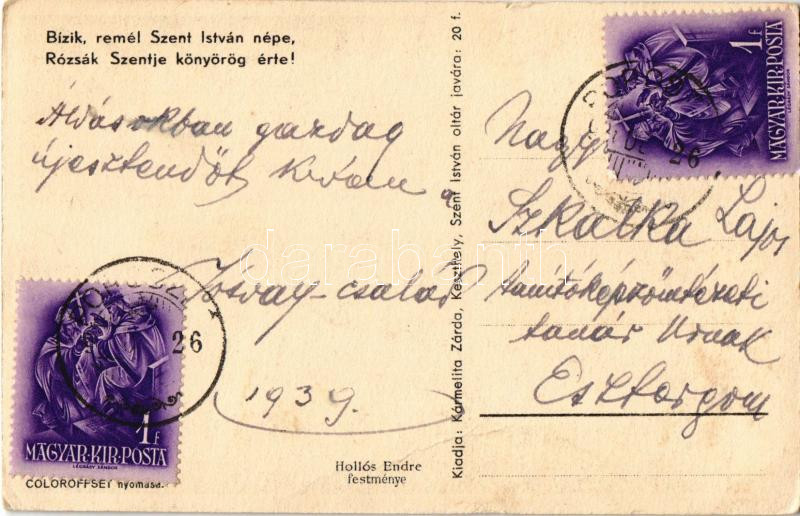 Bízik, remél Szent István népe,
Rózsák Szentje könyörög érte!
Áldásokban gazdag
újesztendőt kíván a
család
1939.
Hollós Endre
festménye
COLOROFFSET nyomása.
MAGYAR·KIR·POSTA
1f
LÉGRÁDY SÁNDOR
26
Kiadja: Kármelita Zárda, Keszthely, Szent István oltár javára: 20 f.
MAGYAR·KIR·POSTA
1f
LÉGRÁDY SÁNDOR
26
Nagys
Szkalka Lajos
tanítóképzőintézeti
tanár Úrnak
Esztergom
darabanth